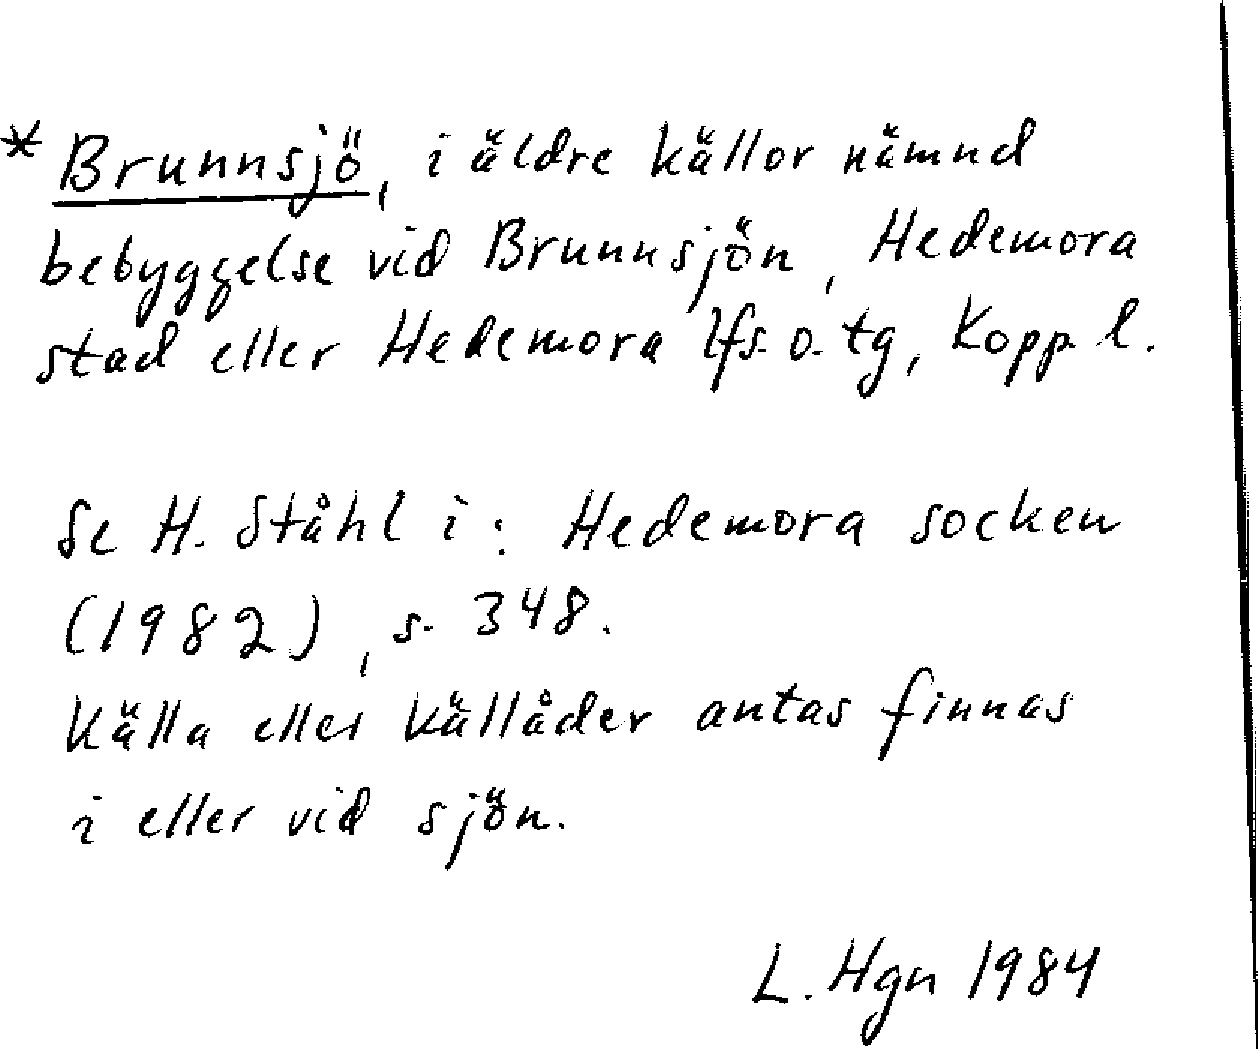 * Brunnsjö, i äldre källor nämnd
bebyggelse vid Brunnsjön, Hedemora
stad eller Hedemora lfs. o. tg, Kopp l.
Se H. Ståhl i: Hedemora socken
(1982), s. 348.
Källa eller källåder antas finnas
i eller vid sjön.
L. Hgn 1984